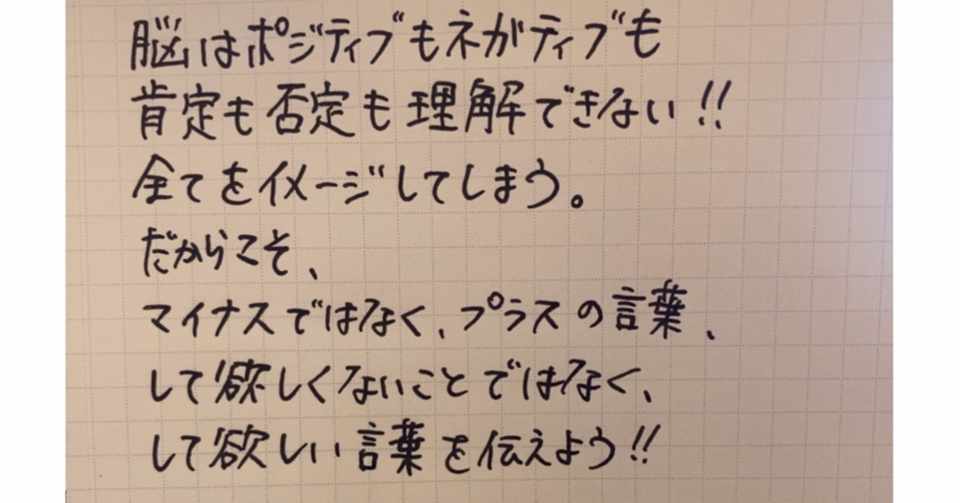 脳はポジティブもネガティブも
肯定も否定も理解できない!!
全てをイメージしてしまう。
だからこそ、
マイナスではなく、プラスの言葉、
して欲しくないことではなく、
して欲しい言葉を伝えよう!!